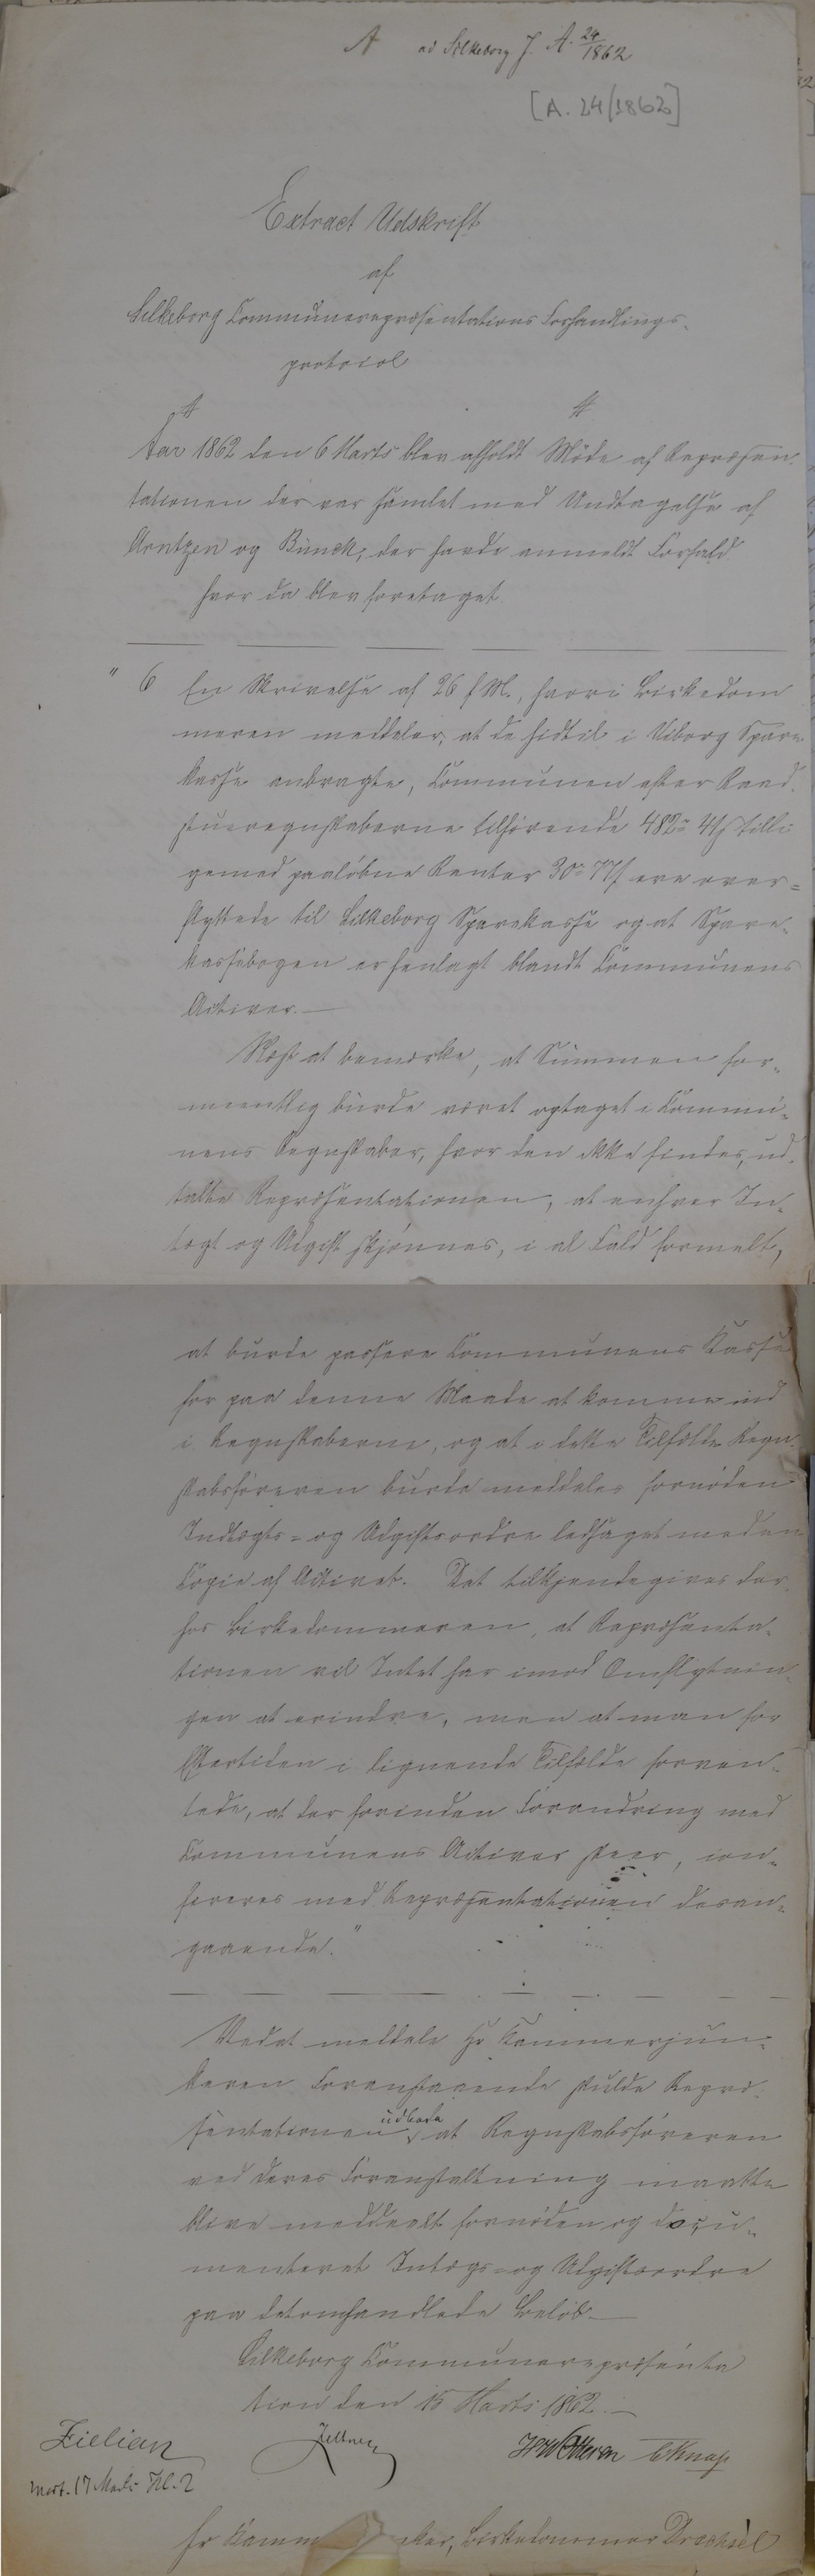 A ad Silkeborg J. A. 24/1862
[A. 24/1862]
Extract Udskrift
af
Silkeborg Communerepræsentations Forhandlings-
protocol
Aar 1862 den 6 Marts blev afholdt Møde af Repræsen-
tationen der var samlet med Undtagelse af
Arntzen og Bunch, der havde anmeldt Forfald
hvor da blev foretaget.
" 6 En Skrivelse af 26 f.M., hvori Birkedom
meren meddeler, at de hidtil i Viborg Spare-
kasse anbragte, Communen efter Raad-
stueregnskaberne tilhørende 482 rd 41 s tilli-
gemed paaløbne Renter 30 rd 77 s ere over-
flyttede til Silkeborg Sparekasse og at Spare-
kassebogen er henlagt blandt Communens
Activer.—
Næst at bemærke, at Summen for-
mentlig burde været optaget i Commu-
nens Regnskaber, hvor den ikke findes, ud-
talte Repræsentationen, at enhver In-
tægt og Udgift skjønnes, i al Fald formelt,
at burde passere Communens Kasse
for paa denne Maade at komme ind
i Regnskaberne, og at i dette Tilfælde Regn-
skabsføreren burde meddeles fornøden
Indtægts- og Udgiftsordre ledsaget med en
Copie af Activet. Det tilkjendegives der-
hos Birkedommeren, at Repræsenta-
tionen vel Intet har imod Omflytnin-
gen at erindre, men at man for
Eftertiden i lignende Tilfælde forven-
tede, at der forinden Forandring med
Communens Activer skeer, con-
fereres med Repræsentationen desan-
gaaende."
Ved at meddele Hr Kammerjun-
keren Foranstaaende skulde Repræ-
sentationen udbede at Regnskabsføreren
ved Deres Foranstaltning maatte
blive meddeelt fornøden og docu-
menteret Intægs- og Udgiftsordre
paa det omhandlede Beløb.—
Silkeborg Communerepræsenta
tion den 15 Marts 1862.—
Zielian Zeltner CKnap
modt. 17 Marts Kl. 2
Hr Kamm ker, Birkedommer Drechsel